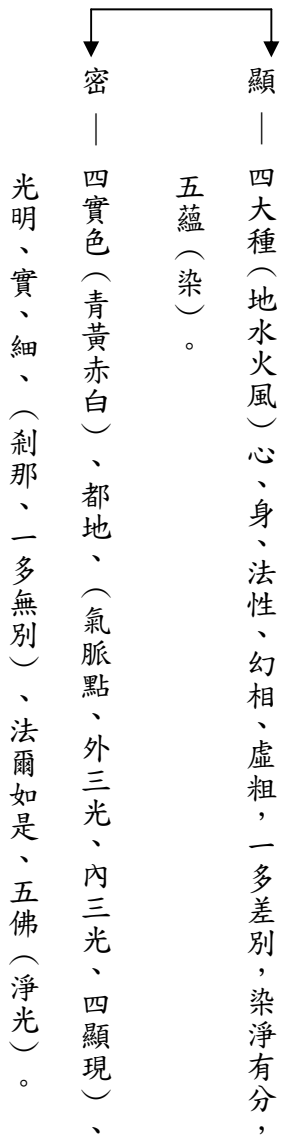 顯｜四大種（地水火風）心、身、法性、幻相、虛粗，一多差別，染淨有分，
五蘊（染）。
密｜四實色（青黃赤白）、都地、（氣脈點、外三光、內三光、四顯現）、
光明、實、細、（剎那、一多無別）、法爾如是、五佛（淨光）。